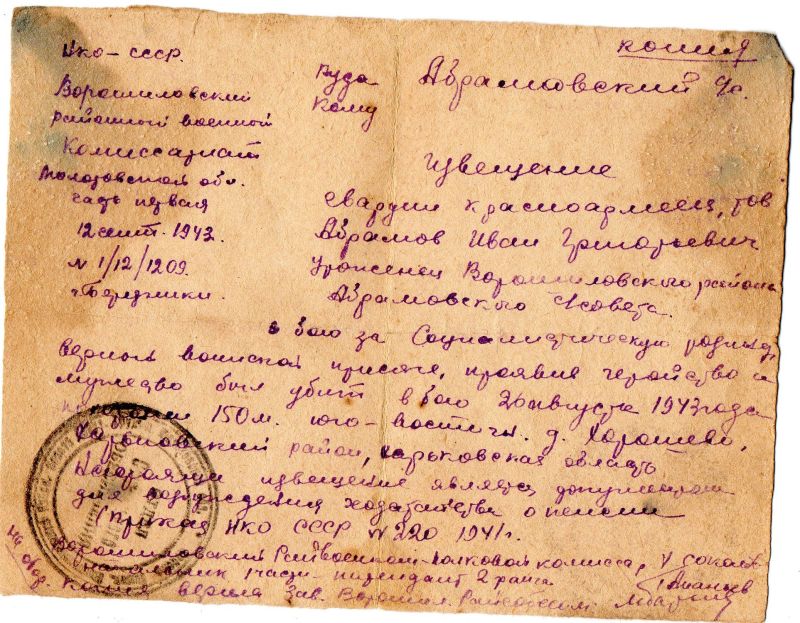 копия
НКО-СССР.
Ворошиловский
районной военной
Комиссариат
Молотовской обл.
часть первая
12 сент. 1943.
N 1/12/1209.
г. Березники.
Куда Абрамовский
Кому
извещение
гвардии красноармеец, тов
Абрамов Иван Григорьевич
Уроженец Ворошиловского района
Абрамовского с/совета.
в бою за Социалистическую родину,
верной воинской присяге, проявив геройство и
мужество был убит в бою 26 августа 1943 года
похоронен 150 м. юго-восточн. д. Хорошево,
район, Харьковская область
Настоящая извещение является документом
для возбуждения ходатайства о пенсии
(приказ НКО СССР N 220 1941 г.
Ворошиловский Райвоенком-полковой комисса,
начальник 1 части-интендант 2 ранга Ананьев
копия верна Зав.